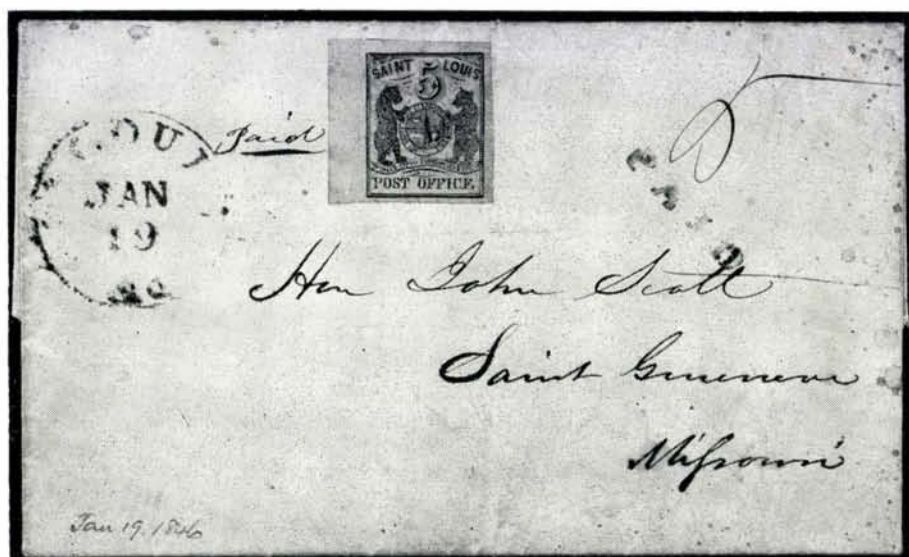 SAINT LOUIS
5
POST OFFICE
Paid
LOUI
JAN
19
MO
5
PAID
Hon John Scott
Saint Genevieve
Mifsouri
Jan 19. 1846